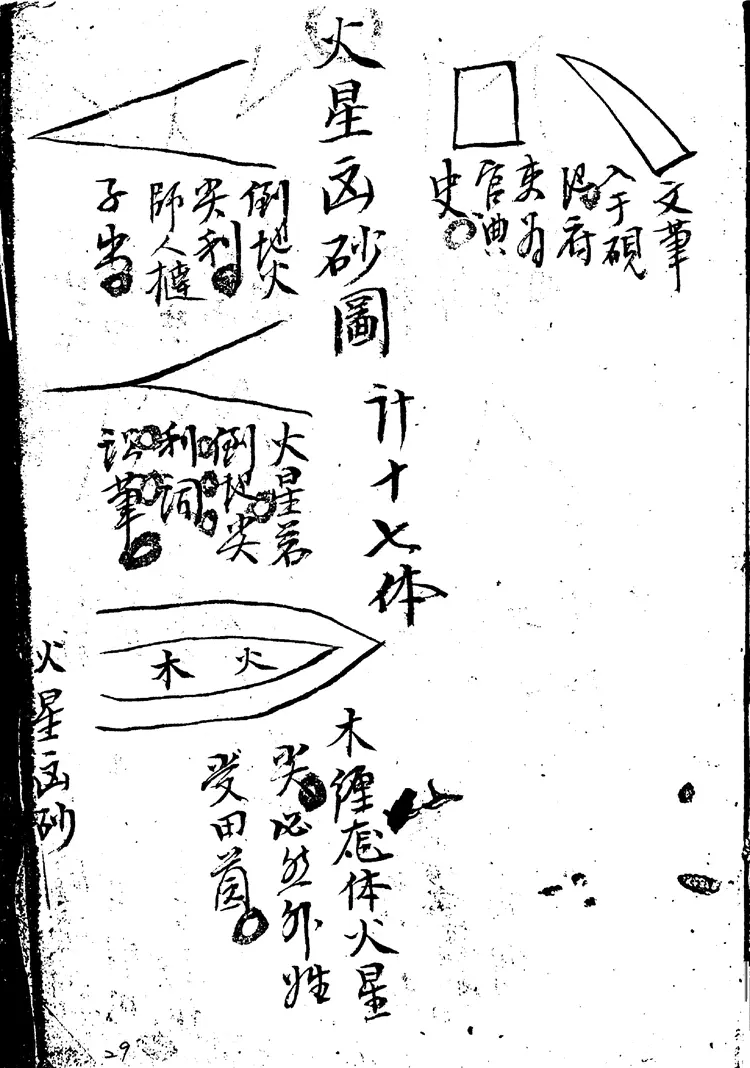 文筆
入于硯
得府
吏為
官典
史
火星凶砂圖
計十七体
倒地火
尖利
師人摙
子出
火星若
倒地尖
利詞
訟筆
火
木
木纏 体火星
尖必然外姓
受田莊
火星凶砂
29